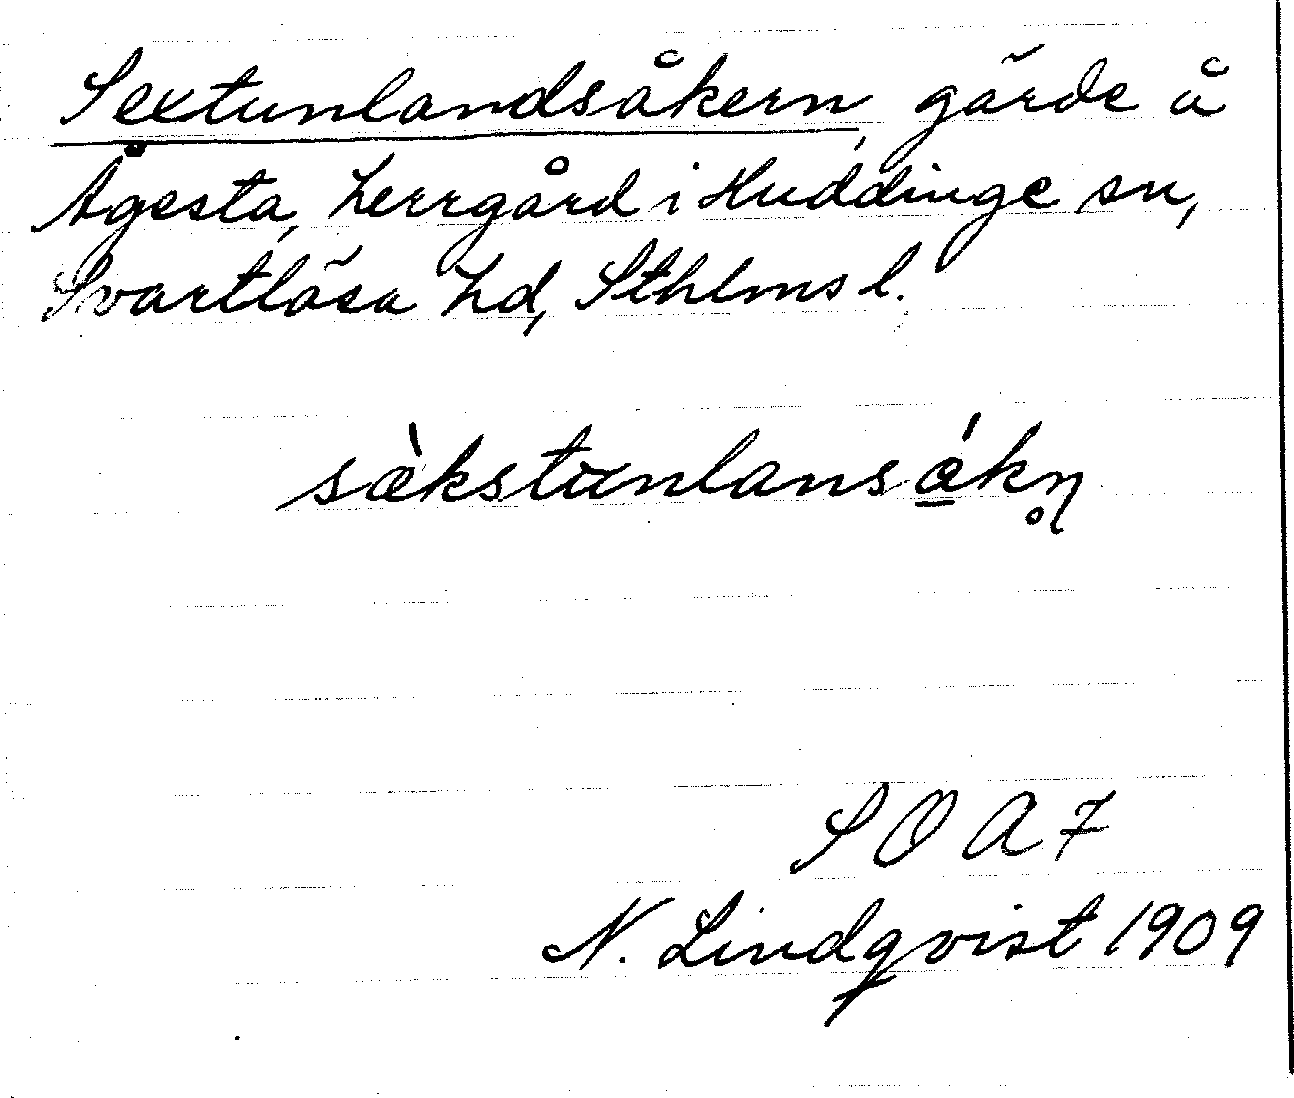 Sextunlandsåkern, gärde å
Ågesta, herrgård i Huddinge sn,
Svartlösa hd, Sthlms l.
sæ̀kstunlansákņ̊
S O A 7
N. Lindqvist 1909